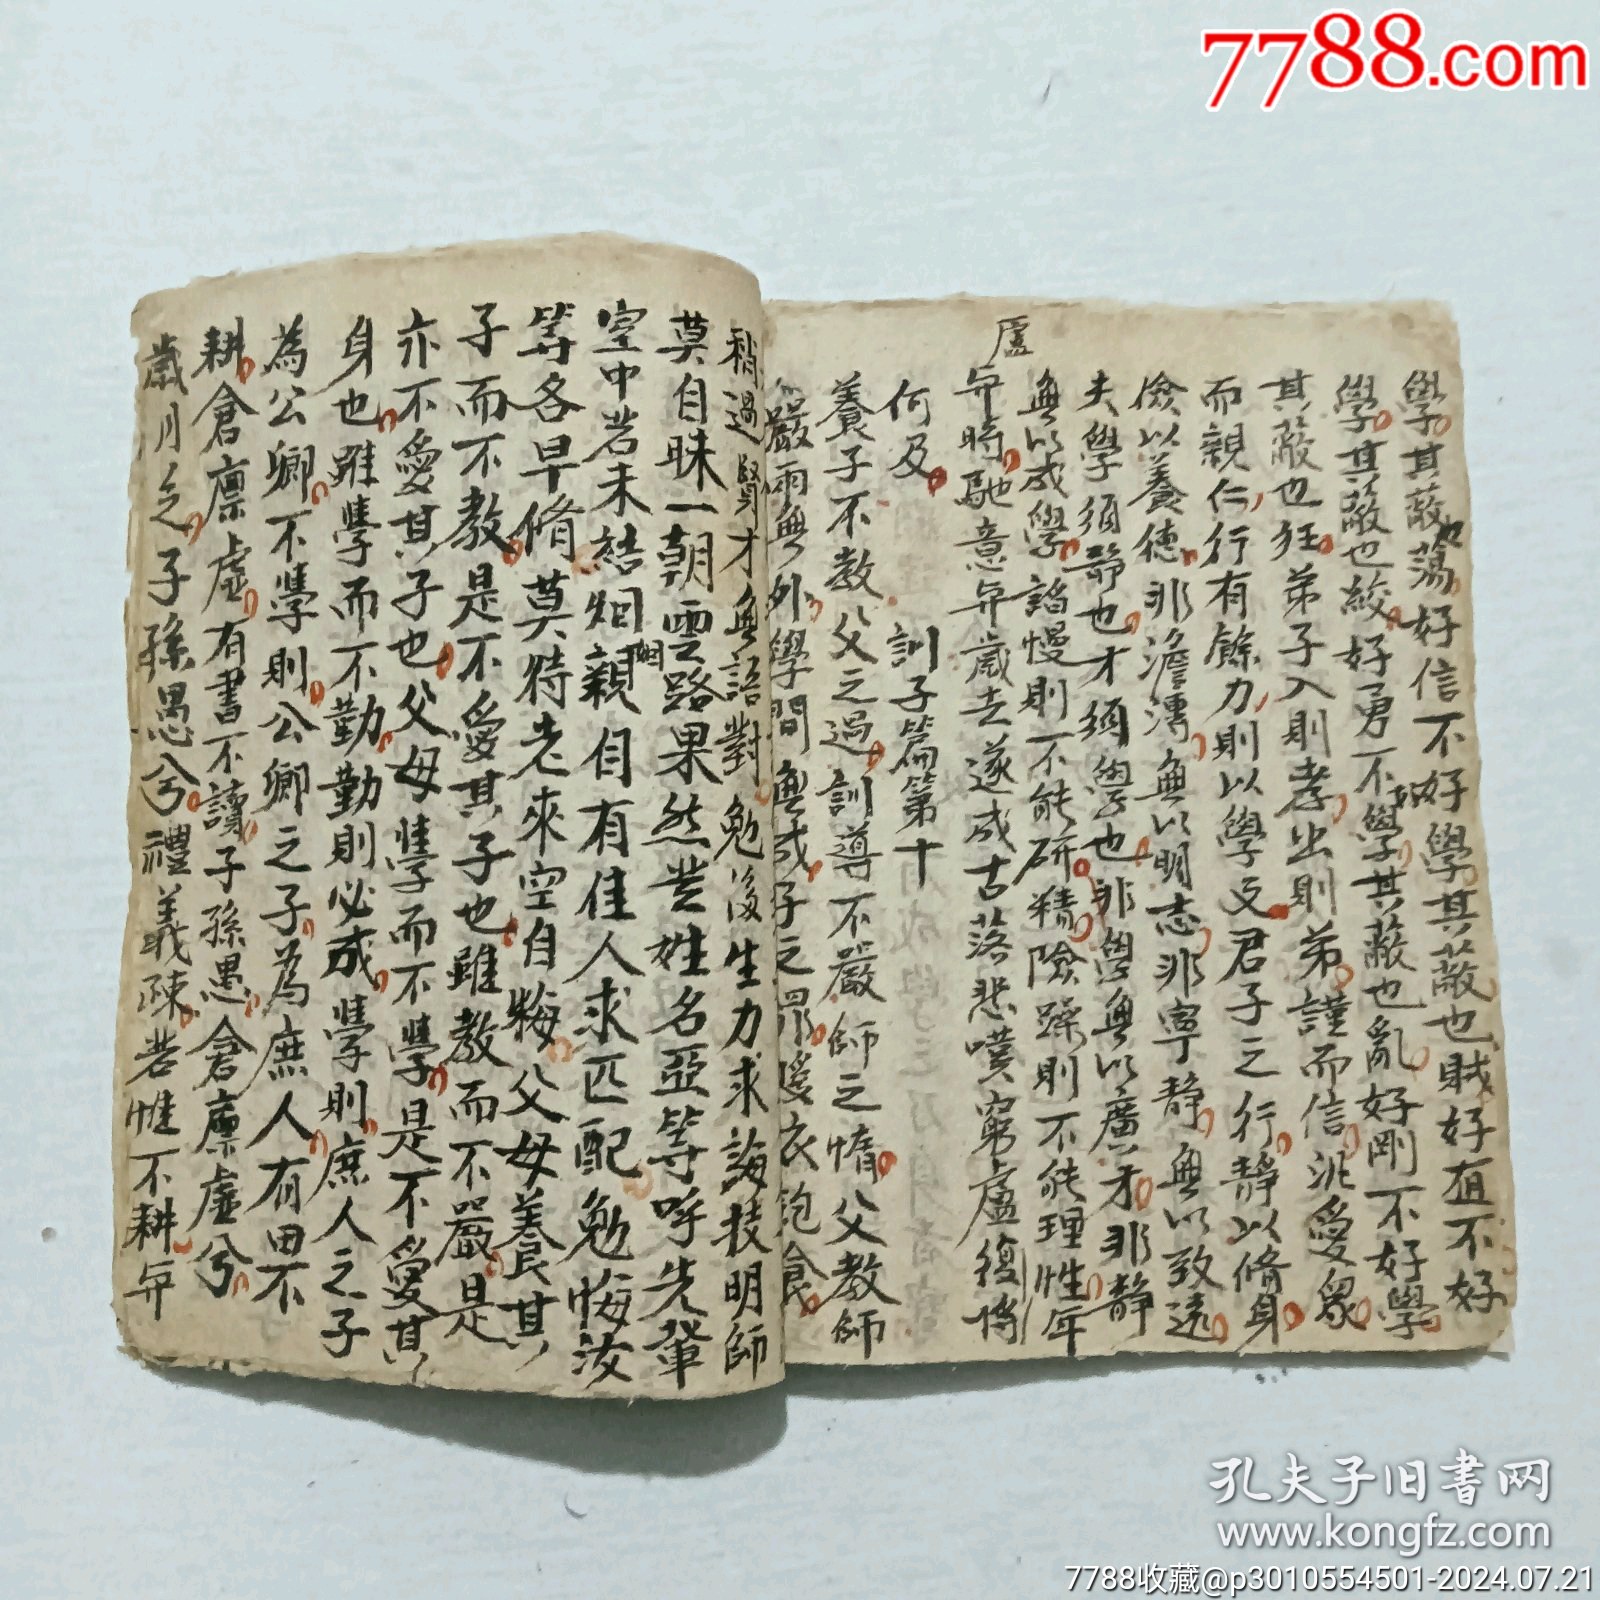 7788.com
學其蔽也蕩好信不好學其蔽也賊好直不好
學其蔽也絞好勇不好學其蔽也亂好剛不好學
其蔽也狂弟子入則孝出則弟謹而信汎愛眾
而親仁行有餘力則以學文君子之行靜以脩身
儉以養德非澹溥無以明志非寧靜無以致遠
夫學須靜也才須學也非學無以廣才非靜
無以成學諂慢則不能研精險躁則不能理性年
盧
与時馳意与歲去遂成古落悲嘆窮廬復將
何及
訓子篇第十
養子不教父之過訓導不嚴師之惰父教師
嚴兩無外學問無成子之罪煖衣飽食
稍過賢才無語對勉後生力求誨技明師
莫自昧一朝雲路果然登姓名亞等呼先輩
室中若未結姻親自有佳人求匹配勉悔汝
等各早脩莫待老來空自悔父母養其
子而不教是不愛其子也雖教而不嚴是
亦不愛其子也父母學而不學是不愛其
身也雖學而不勤勤則必成學則庶人之子
為公卿不學則公卿之子為庶人有田不
耕倉廩虛有書不讀子孫愚倉廩虛兮
歲月乏子孫愚兮禮義疎若惟不耕与
孔夫子旧书网
www.kongfz.com
7788收藏@p3010554501-2024.07.21